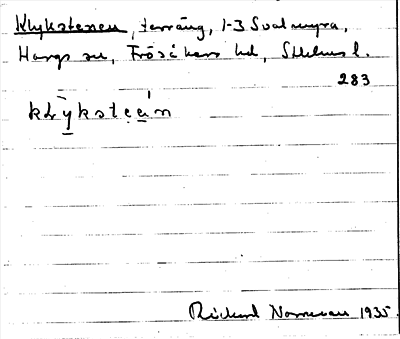 Klykstenen, terräng, 1-3 Svalmyra,
Hargs sn, Frösåkers hd, Sthlms l.
283
kḷy̠kstẹa̠n
Rickard Norrman 1935.